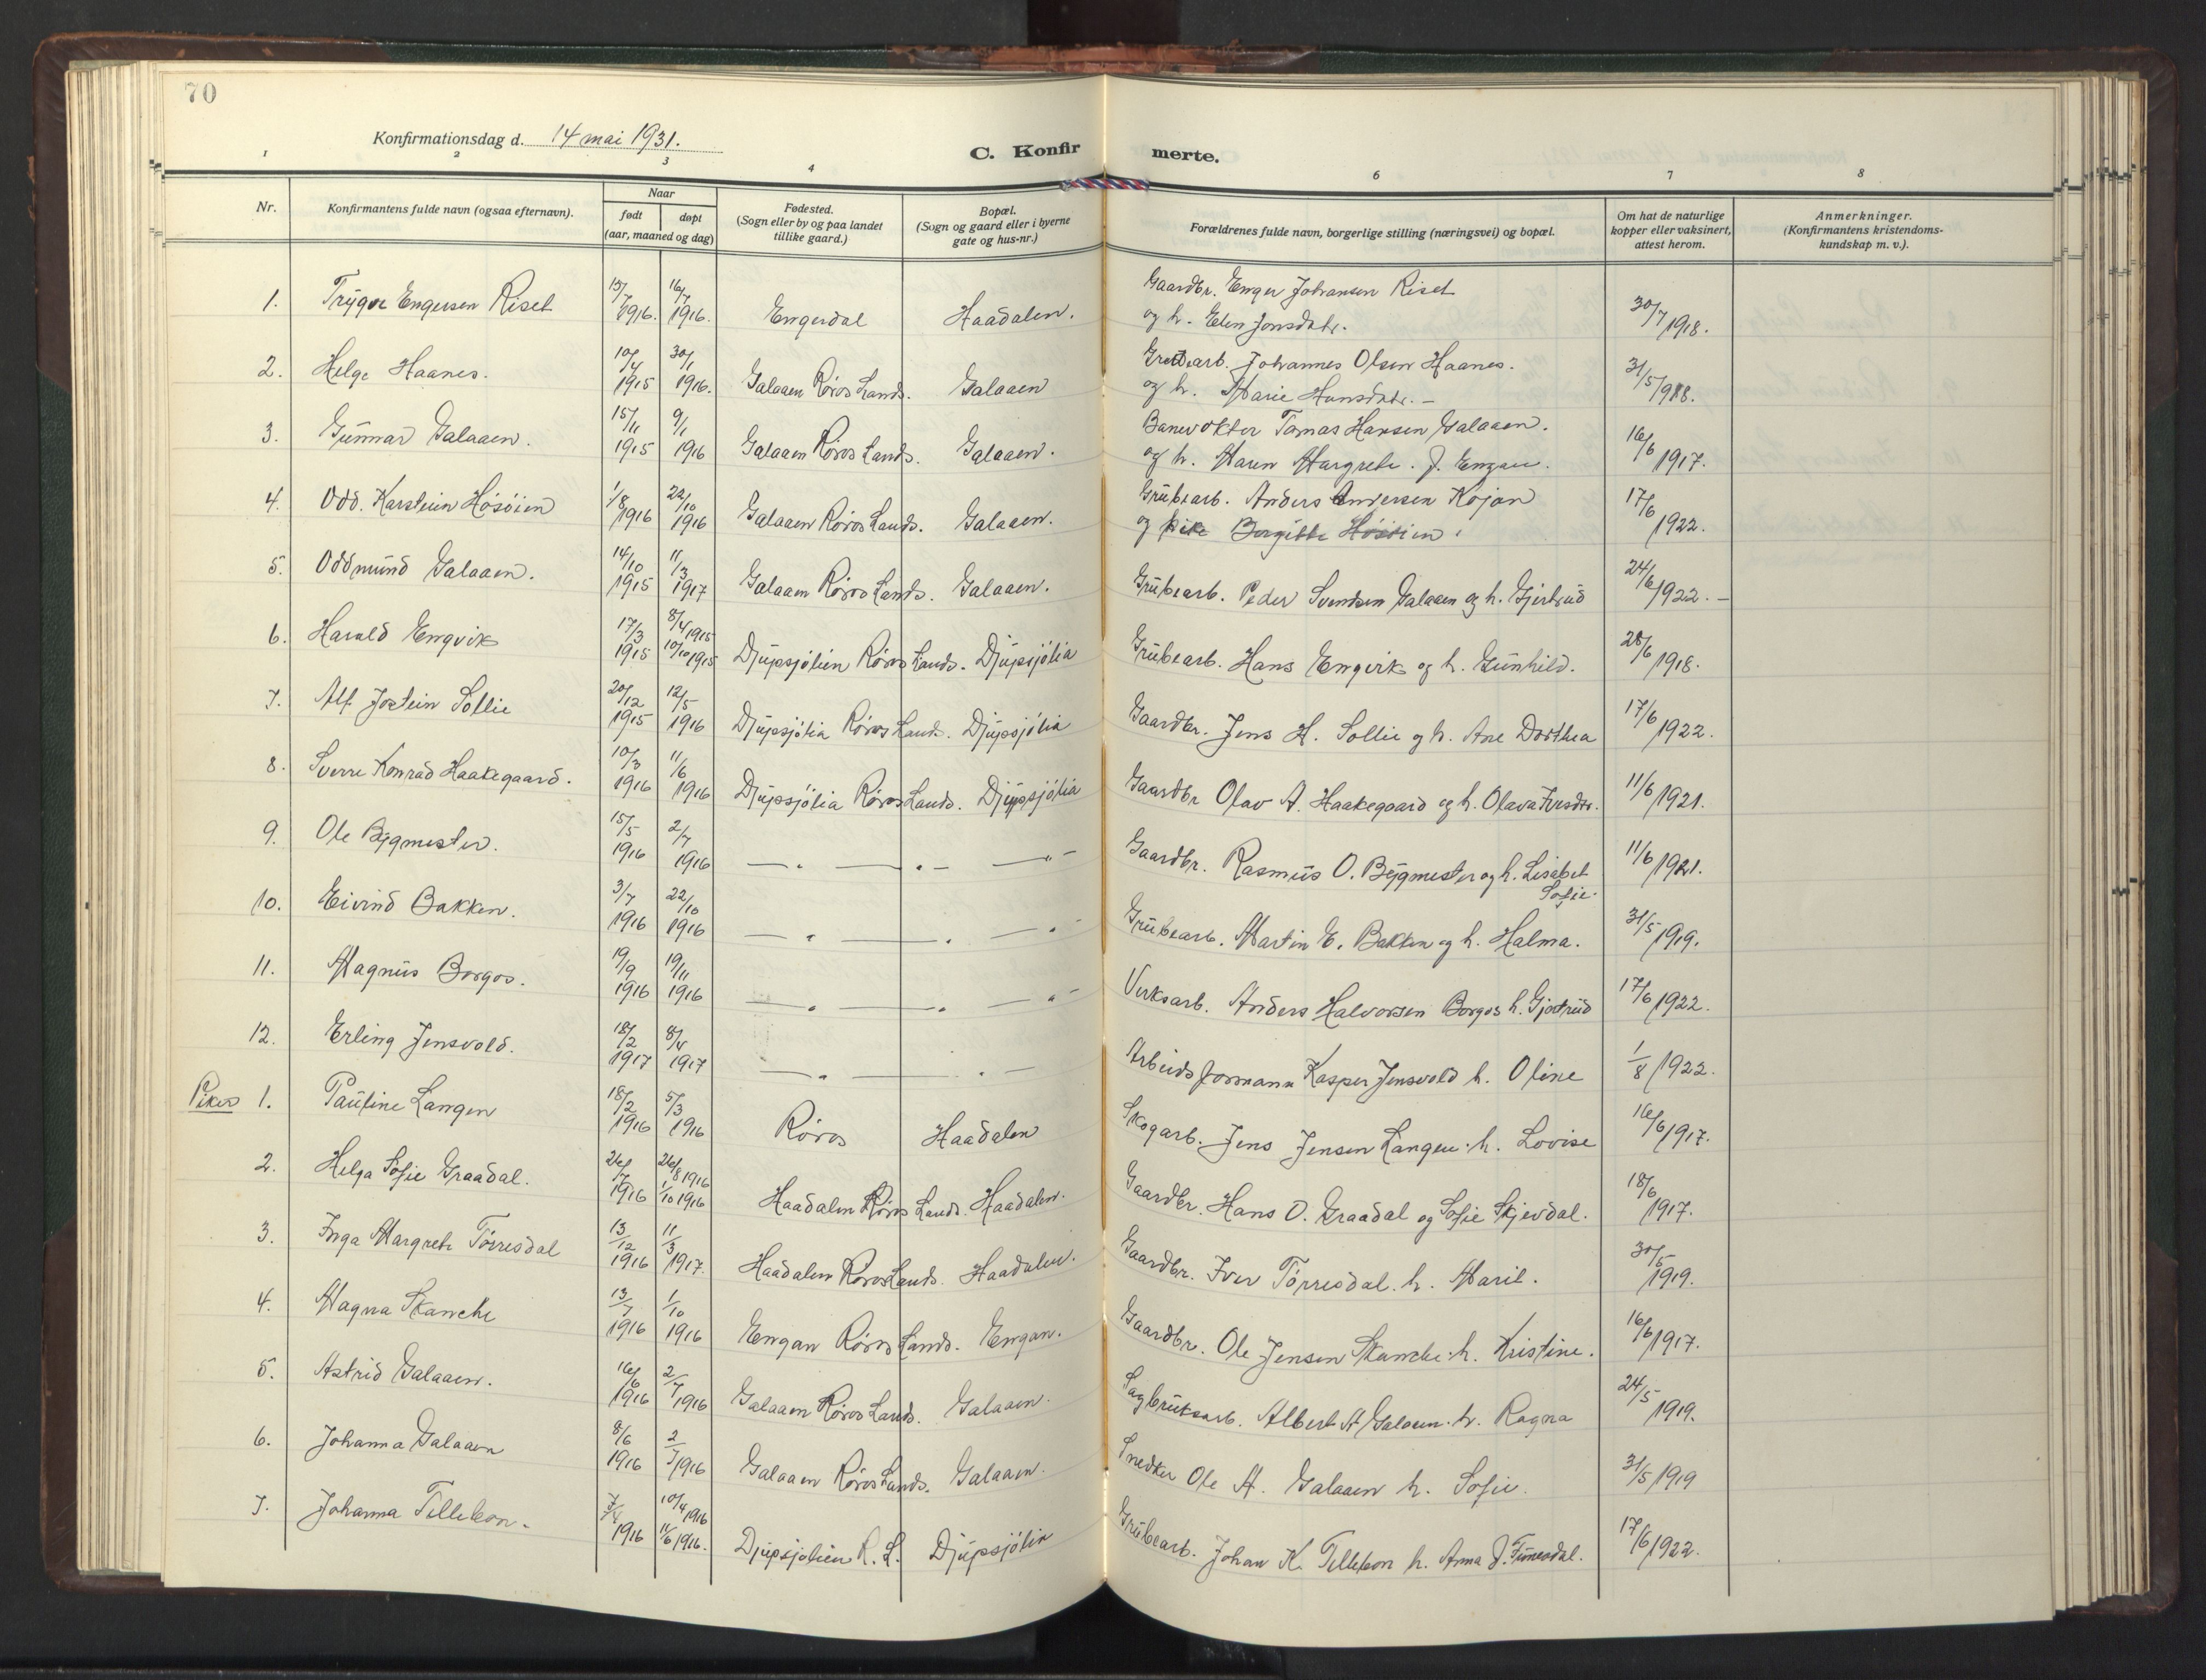 70
Konfirmationsdag d. 14 mai 1931.
C. Konfir merte.
1 2 3 4 6 7 8
Nr.
Konfirmantens fulde navn (ogsaa efternavn).
Naar
født døpt
(aar, maaned og dag)
Fødested.
(Sogn eller by og paa landet
tillike gaard.)
Bopæl.
(Sogn og gaard eller i byerne
gate og hus-nr.)
Forældrenes fulde navn, borgerlige stilling (næringsvei) og bopæl.
Om hat de naturlige
kopper eller vaksinert,
attest herom.
Anmerkninger.
(Konfirmantens kristendoms-
kundskap m. v.).
1. Trygve Engersen Riset 13/7 1916. 16/7 1916. Engerdal Haadalen. Gaardbr. Enger Johansen Riset
og h. Elen Jonsdatr. 30/7 1918.
2. Helge Haanes. 10/4 1915 30/1 1916. Galaaen Røros Lands. Galaaen Grubearb. Johannes Olsen Haanes.
og h. Marie Hansdatr. – 31/5 1918.
3. Gunnar Galaaen. 15/11 1915 9/1 1916 Galaaen Røros Lands. Galaaen. Banevokter Tomas Hansen Galaaen.
og h. Maren Margrete. J. Engan. 16/6 1917.
4. Odd. Karstein Høsøien 1/8 1916 22/10 1916 Galaaen Røros Lands. Galaaen. Grubearb. Anders Andersen Kojan
og pike Borgitte Høsøien. 17/6 1922.
5. Oddmund Galaaen. 14/10 1915 11/3 1917 Galaaen Røros Lands. Galaaen. Grubearb. Peder Svendsen Galaaen og h. Gjertrud 24/6 1922. –
6. Harald Engvik 17/3 1915 8/4 1915 10/10 1915 Djupsjølien Røros Lands. Djupsjølia Grubearb. Hans Engvik og h. Gunhild. 28/6 1918.
7. Alf Jostein Sollie 20/12 1915 12/5 1916 Djupsjølia Røros Lands. Djupsjølia Gaardbr. Jens H. Sollie og h. Ane Dorthea 17/6 1922.
8. Sverre Konrad Haakegaard. 10/3 1916 11/6 1916 Djupsjølia Røros Lands. Djupsjølia Gaardbr Olav A. Haakegaard og h. Olava Iversdtr. 11/6 1921.
9. Ole Bygmester. 15/5 1916 2/7 1916 — " — " — — " — Gaardbr. Rasmus O. Bygmester og h. Lisabet
Sofie. 11/6 1921.
10. Eivind Bakken. 3/7 1916 22/10 1916 — " — " — " Grubearb. Martin E. Bakken og h. Halma. 31/5 1919.
11. Magnus Borgos. 19/9 1916 19/11 1916 — " — " — " – Verksarb. Anders Halvorsen Borgos h. Gjertrud 17/6 1922.
12. Erling Jensvold. 18/2 1917 8/4 1917 — " — " — Arbeidsformann Kasper Jensvold h. Oline 1/8 1922.
Piker 1. Pauline Langen 18/2 1916 5/3 1916 Røros Haadalen Skogarb. Jens Jensen Langen. h. Lovise 16/6 1917.
2. Helga Sofie Graadal. 26/7 1916 26/8 1916 1/10 1916 Haadalen Røros Lands. Haadalen. Gaardbr. Hans O. Graadal og Sofie Skjevdal. 18/6 1917.
3. Inga Margrete Tørresdal 13/12 1916 11/3 1917. Haadalen Røros Lands. Haadalen. Gaardbr. Iver Tørresdal. h. Marit. 30/5 1919.
4. Magna Skancke 13/7 1916 1/10 1916 Engan Røros Lands. Engan. Gaardbr. Ole Jensen Skancke. h. Kristine. 16/6 1917.
5. Astrid Galaaen. 16/6 1916 2/7 1916 Galaaen Røros Lands. Galaaen. Sagbruksarb. Albert A Galaaen. h. Ragna 24/5 1919.
6. Johanna Galaaen 8/6 1916 2/7 1916 Galaaen Røros Lands. Galaaen. Snedker Ole A. Galaaen h. Sofie. 31/5 1919
7. Johanna Tellebon. 1916 10/4 1916 11/6 1916. Djupsjølien R. L. Djupsjølia Grubearb. Johan K. Tellebon h. Anna J. Funesdal. 17/6 1922.